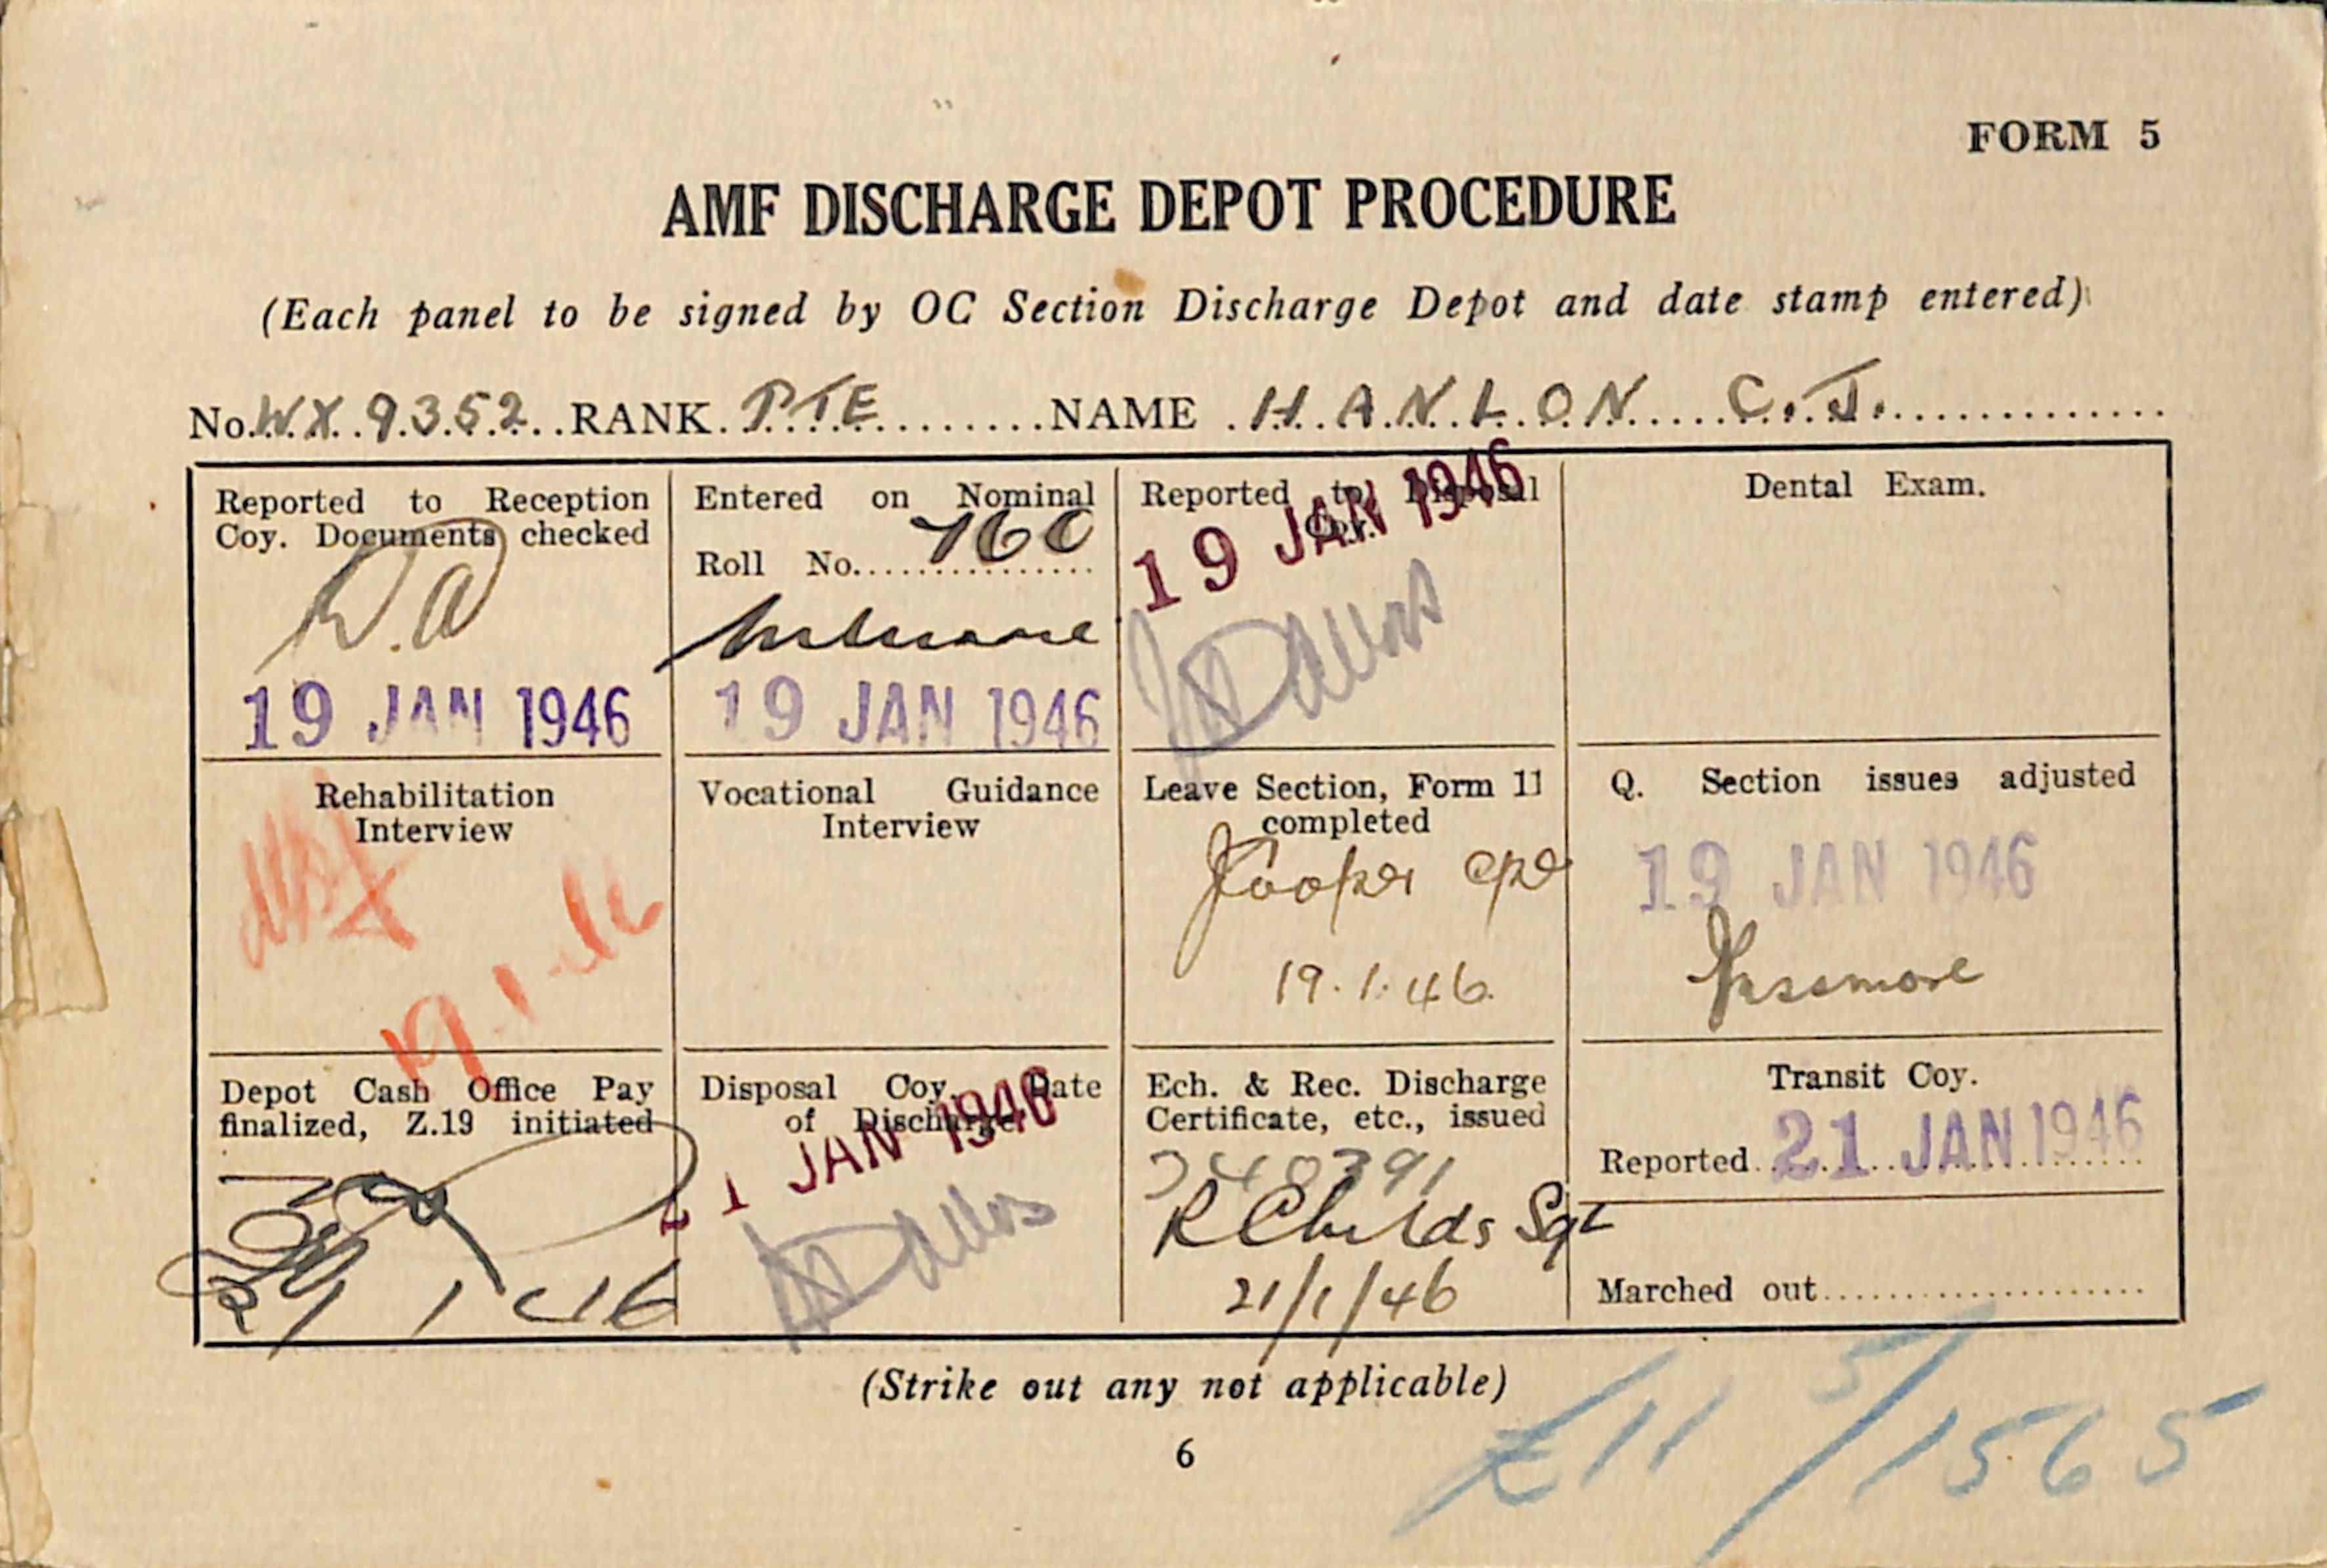 FORM 5
AMF DISCHARGE DEPOT PROCEDURE
(Each panel to be signed by OC Section Discharge Depot and date stamp entered)
No. WX 9352 RANK PTE NAME HANLON C.J.
Reported to Reception
Coy. Documents checked
19 JAN 1946
Entered on Nominal
Roll No. 760
19 JAN 1946
Reported to Disposal
Coy.
19 JAN 1946
Dental Exam.
Rehabilitation
Interview
19.1.46
Vocational Guidance
Interview
Leave Section, Form 11
completed
Cooper Cpl
19.1.46
Q. Section issues adjusted
19 JAN 1946
Passmore
Depot Cash Office Pay
finalized, Z.19 initiated
1 46
Disposal Coy. Date
of Discharge
21 JAN 1946
Ech. & Rec. Discharge
Certificate, etc., issued
340391
R Childs Sgt
21/1/46
Transit Coy.
Reported 21 JAN 1946
Marched out
(Strike out any not applicable)
6
£11 5/ 1565